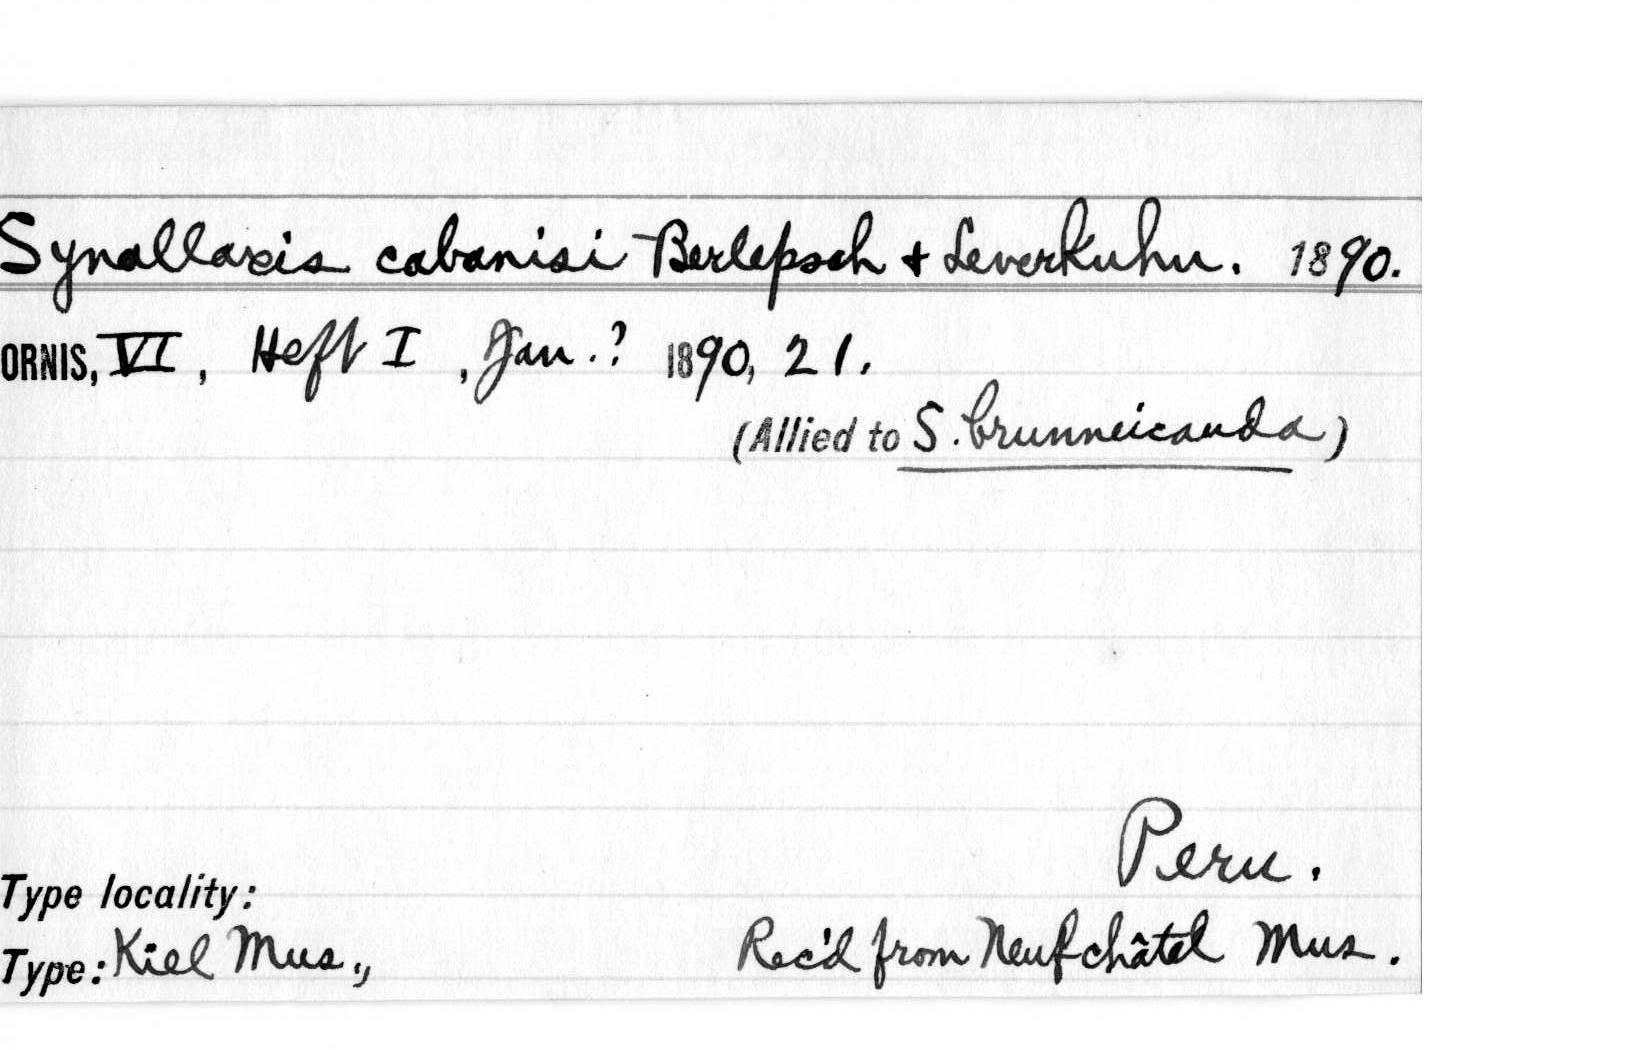 Synallaxis cabanisi Berlepsch + Leverkuhn. 1890.
ORNIS, VI, Heft I, Jan.? 1890, 21.
(Allied to S. brunneicauda)
Peru.
Type locality:
Type: Kiel Mus., Rec'd from Neufchâtel Mus.